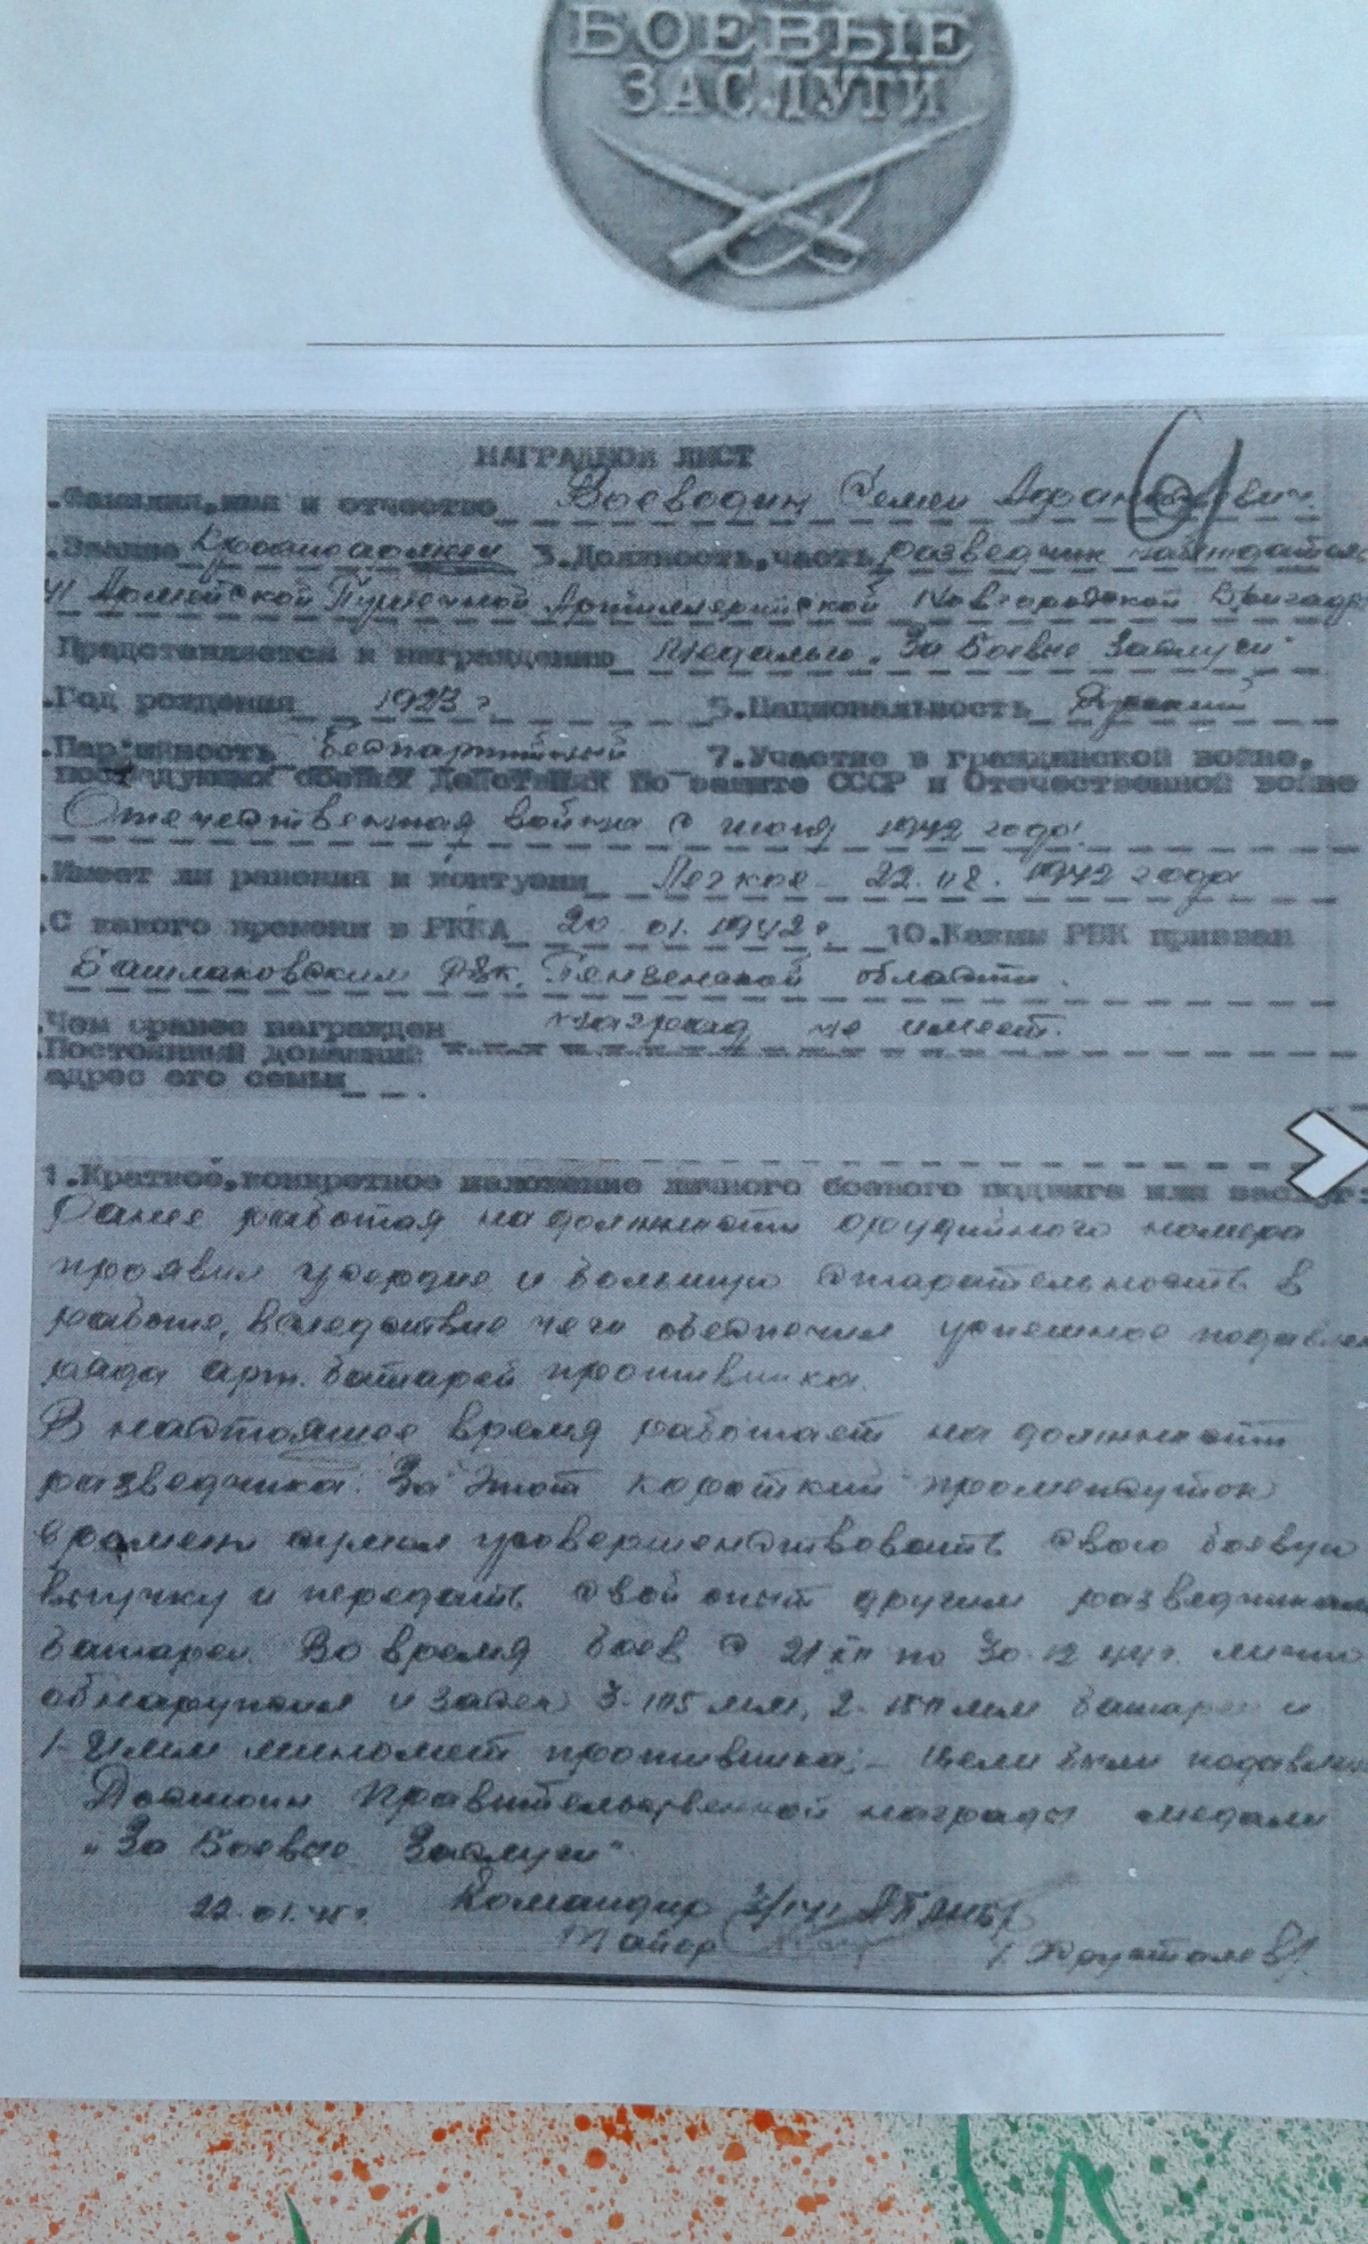 БОЕВЫЕ
ЗАСЛУГИ
НАГРАДНОЙ ЛИСТ
.Фамилия,имя и отчество Воеводин Семен
.Звание Красноармеец 3.Должность,часть разведчик наблюдатель
Армейской Пушечной Артиллерийской Новгородской Бригады
Представляется к награждению Медалью „За Боевые Заслуги"
.Год рождения 1923 г 5.Национальность Русский
.Партийность Беспартийный 7.Участие в гражданской войне,
последующих боевых действиях по защите СССР и Отечественной войне
Отечественная война с июля 1942 года.
.Имеет ли ранения и контузии Легкое 22.08.1942 года
.С какого времени в РККА 20.01.1942г. 10.Каким РВК призван
Башмаковским РВК, Пензенской области.
.Чем ранее награжден наград не имеет.
.Постоянный домашний
адрес его семьи
1.Краткое,конкретное изложение личного боевого подвига или заслуг
Ранее работая на должности орудийного номера
проявил усердие и большую старательность в
работе, вследствие чего обеспечил успешное подавлен
ряда арт. батарей противника.
В настоящее время работает на должности
разведчика. За этот короткий промежуток
времени сумел усовершенствовать свою боевую
выучку и передать свой опыт другим разведчикам
батареи. Во время боев с 21 XII по 30.12 44г. лично
обнаружил и засек 3-105 мм, 2-150 мм батареи и
1- миномет противника; - Цели были подавлены
Достоин Правительственной награды медали
„За Боевые Заслуги"
22.01.45г. Командир
Майор /Хрусталев/